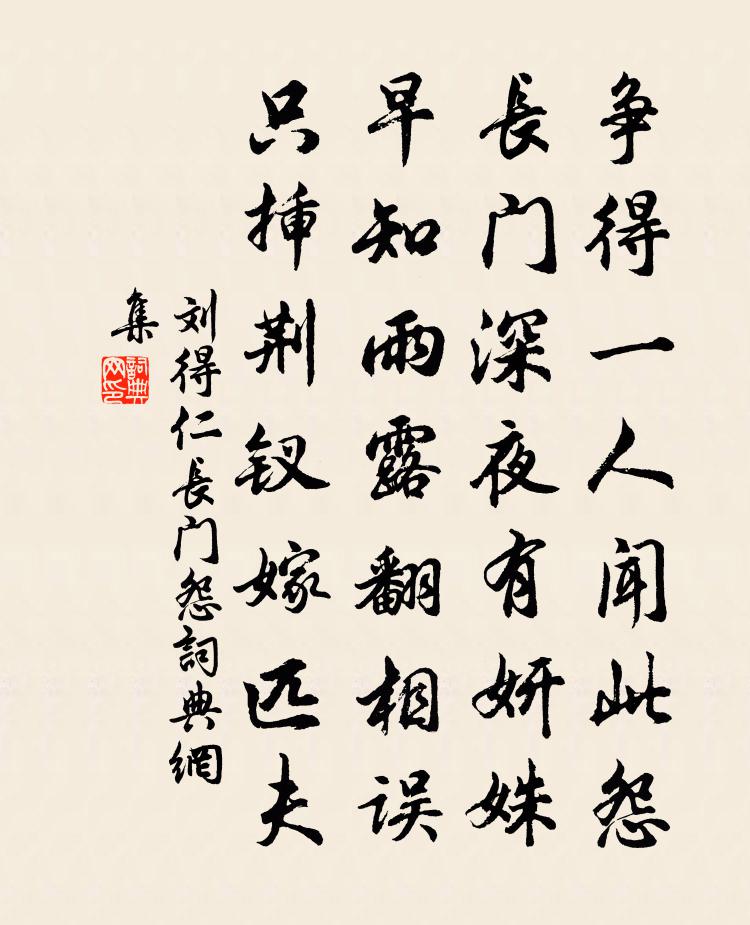 争得一人闻此怨
長门深夜有妍姝
早知雨露翻相误
只插荆钗嫁匹夫
刘得仁長门怨詞典網
集
詞典
网印